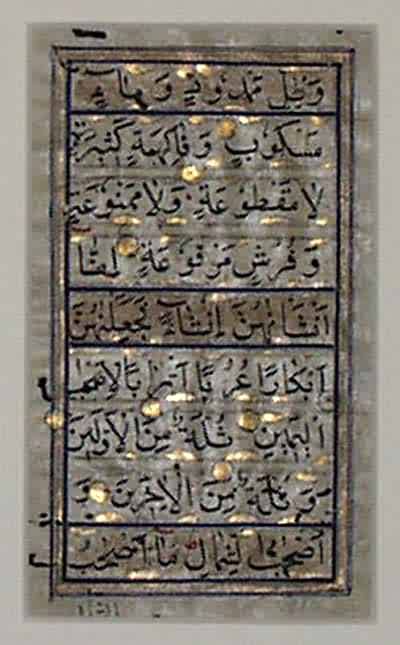 وَظِلٍّ مَمْدُودٍ وَمَاءٍ
مَسْكُوبٍ وَفَاكِهَةٍ كَثِيرَةٍ
لَا مَقْطُوعَةٍ وَلَا مَمْنُوعَةٍ
وَفُرُشٍ مَرْفُوعَةٍ إِنَّا
أَنْشَأْنَاهُنَّ إِنْشَاءً فَجَعَلْنَاهُنَّ
أَبْكَارًا عُرُبًا أَتْرَابًا لِأَصْحَابِ
الْيَمِينِ ثُلَّةٌ مِنَ الْأَوَّلِينَ
وَثُلَّةٌ مِنَ الْآخِرِينَ وَ
أَصْحَابُ الشِّمَالِ مَا أَصْحَابُ